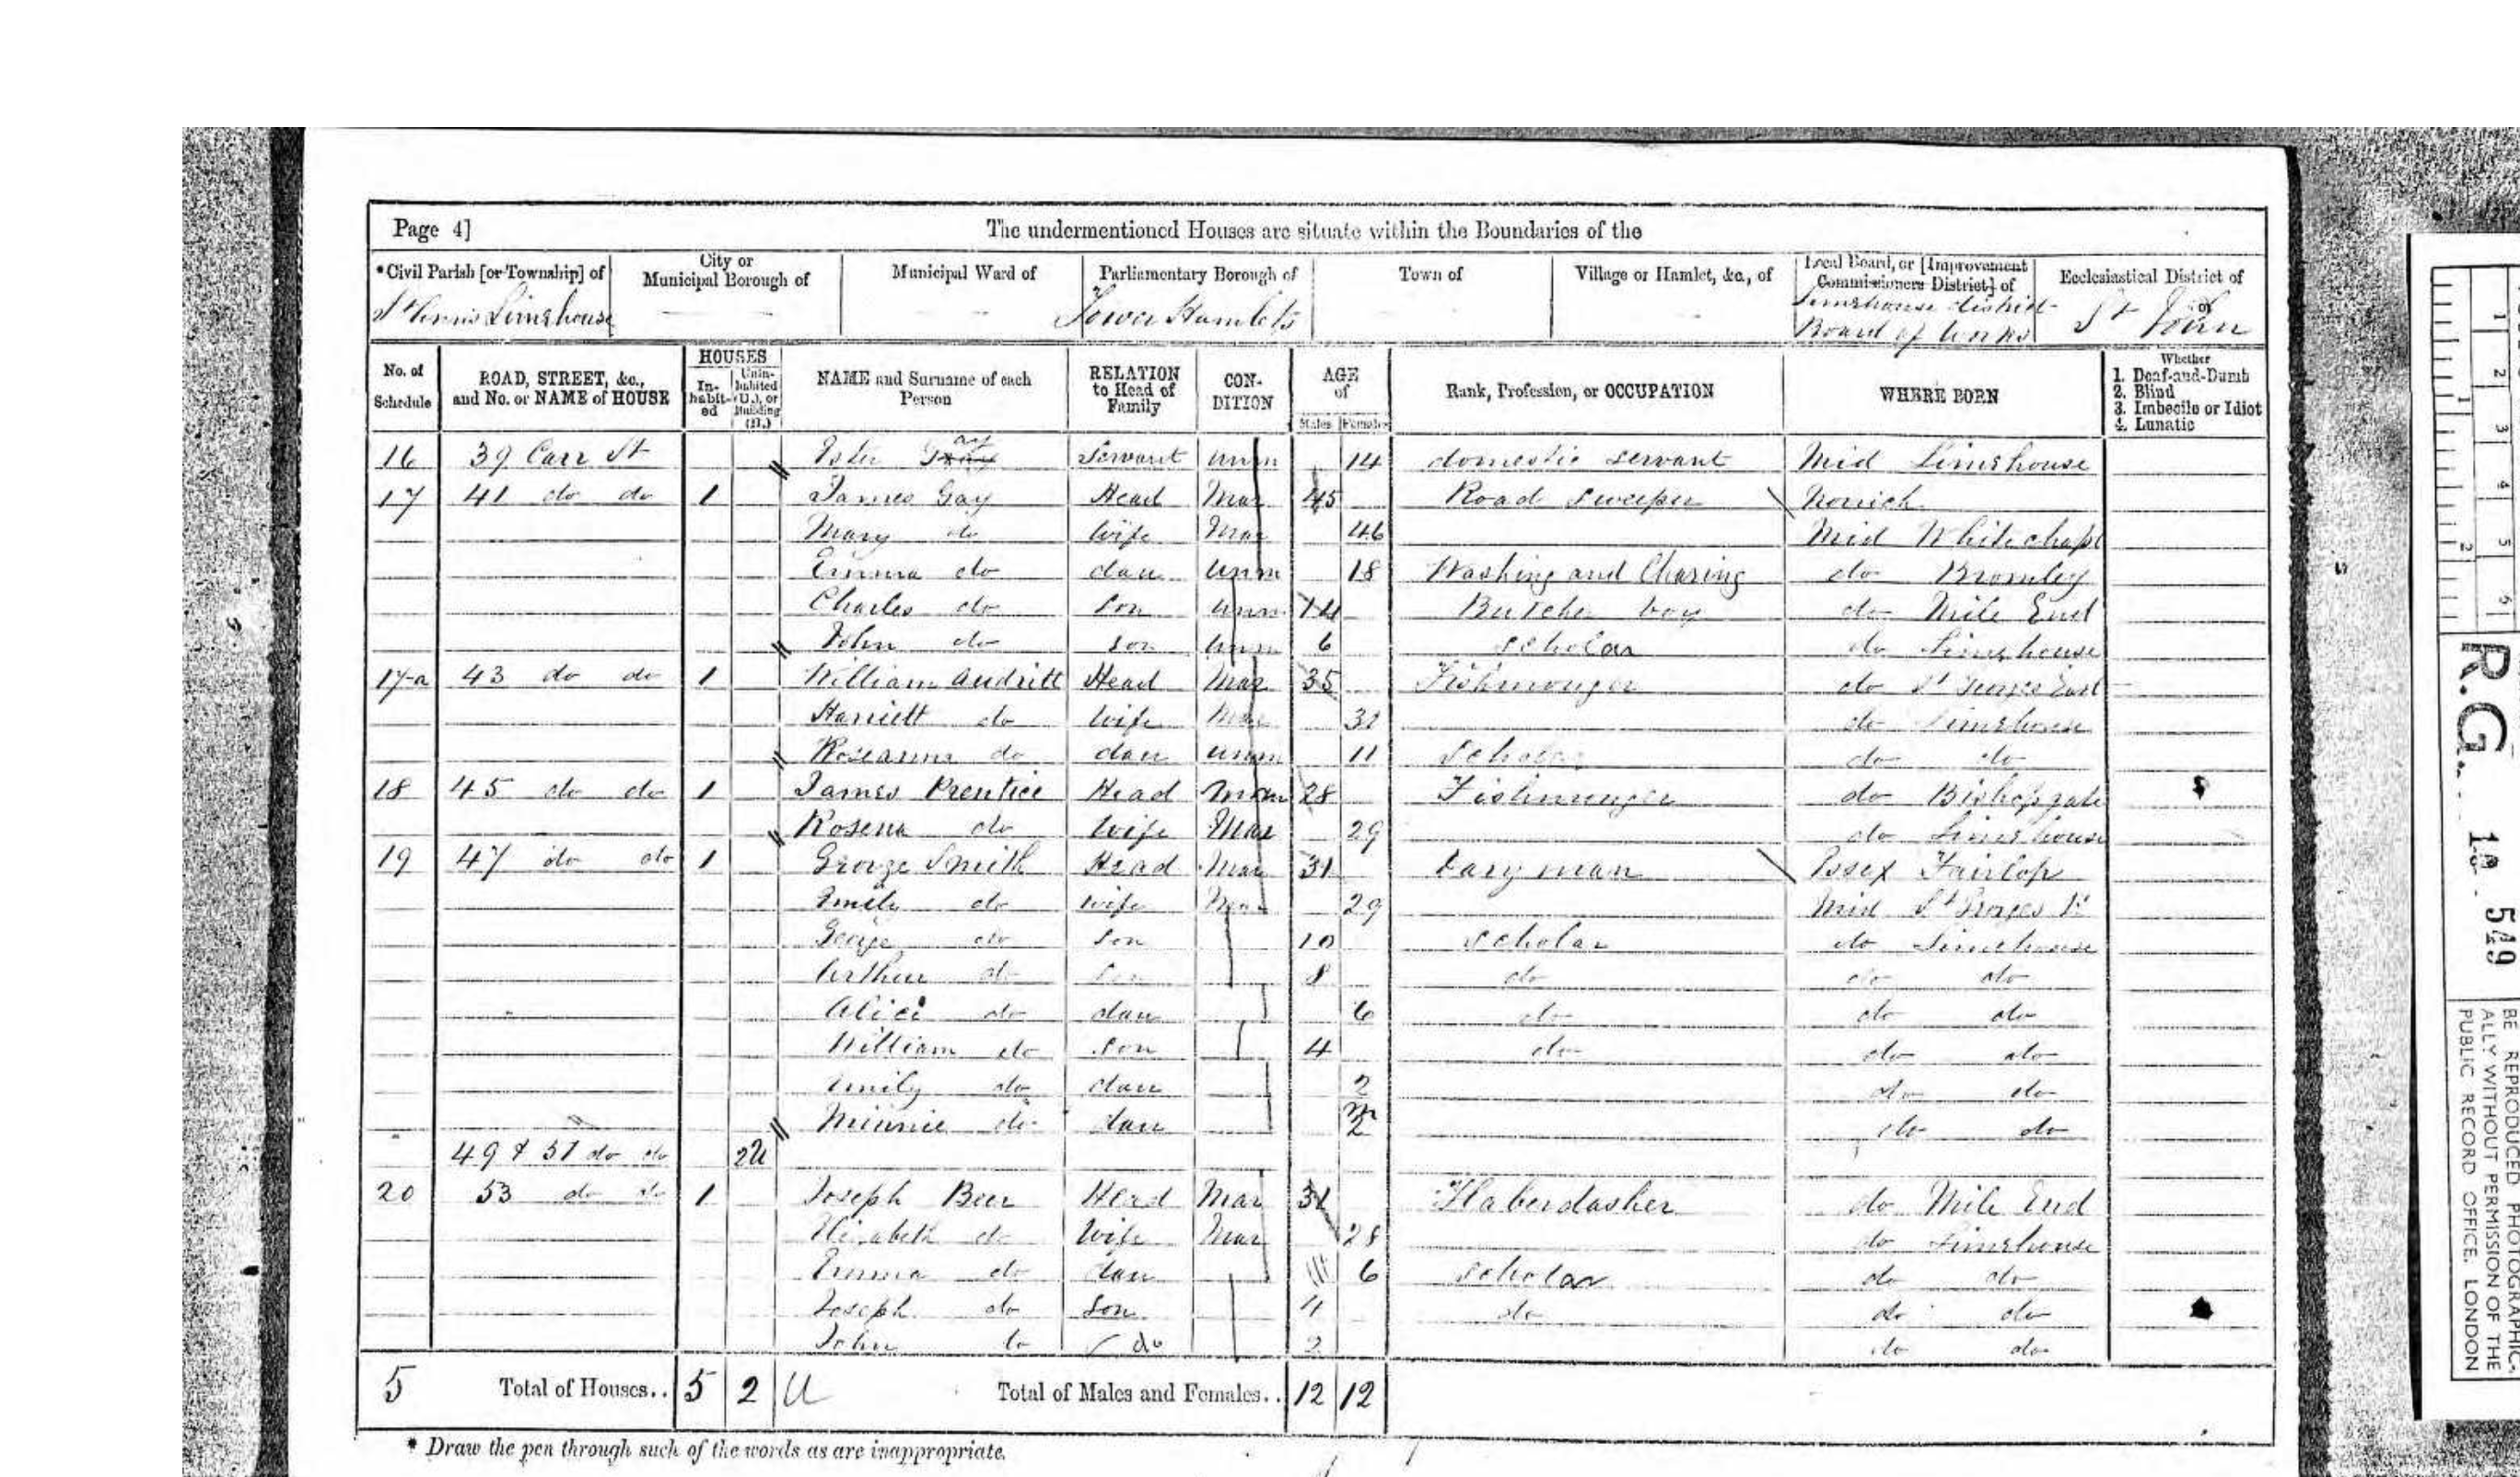 Page 4] The undermentioned Houses are situate within the Boundaries of the
*Civil Parish [or Township] of City or Municipal Borough of Municipal Ward of Parliamentary Borough of Town of Village or Hamlet, &c., of Local Board, or [Improvement Commissioners District] of Ecclesiastical District of
Limehouse Tower Hamlets Limehouse district Board of Works St John
No. of Schedule ROAD, STREET, &c., and No. or NAME of HOUSE HOUSES In-habit-ed Unin-habited (U.), or Building (B.) NAME and Surname of each Person RELATION to Head of Family CON-DITION AGE of Males Females Rank, Profession, or OCCUPATION WHERE BORN Whether 1. Deaf-and-Dumb 2. Blind 3. Imbecile or Idiot 4. Lunatic
16 39 Carr St Servant unm 14 domestic servant Mid Limehouse
17 41 do do 1 James Gay Head Mar 45 Road Sweeper Norwich
Mary do Wife Mar 46 Mid Whitechapl
Emma do dau unm 18 Washing and Charing do Bromley
Charles do Son unm 14 Butcher boy do Mile End
John do Son unm 6 scholar do Limehouse
17a 43 do do 1 William Audritt Head Mar 35 Fishmonger do St Georges East
Harriett do Wife Mar 32 do Limehouse
Roseanna do dau unm 11 Scholar do do
18 45 do do 1 James Prentice Head Mar 28 Fishmonger do Bishopgate
Rosena do Wife Mar 29 do Limehouse
19 47 do do 1 George Smith Head Mar 31 man Essex Fairlop
Emily do wife Mar 29 Mid St Georges E
George do Son 10 Scholar do Limehouse
Arthur do Son 8 do do do
Alice do dau 6 do do do
William do Son 4 do do do
Emily do dau 2 do do
Minnie do dau do do
49 & 51 do do 2U
20 53 do do 1 Joseph Beer Head Mar 31 Haberdasher do Mile End
Elizabeth do Wife Mar 28 do Limehouse
Emma do dau 6 Scholar do do
Joseph do Son 4 do do do
John do do 2 do do
5 Total of Houses.. 5 2 U Total of Males and Females.. 12 12
* Draw the pen through such of the words as are inappropriate.
R.G. 10 549
BE REPRODUCED PHOTOGRAPHIC-
ALLY WITHOUT PERMISSION OF THE
PUBLIC RECORD OFFICE, LONDON